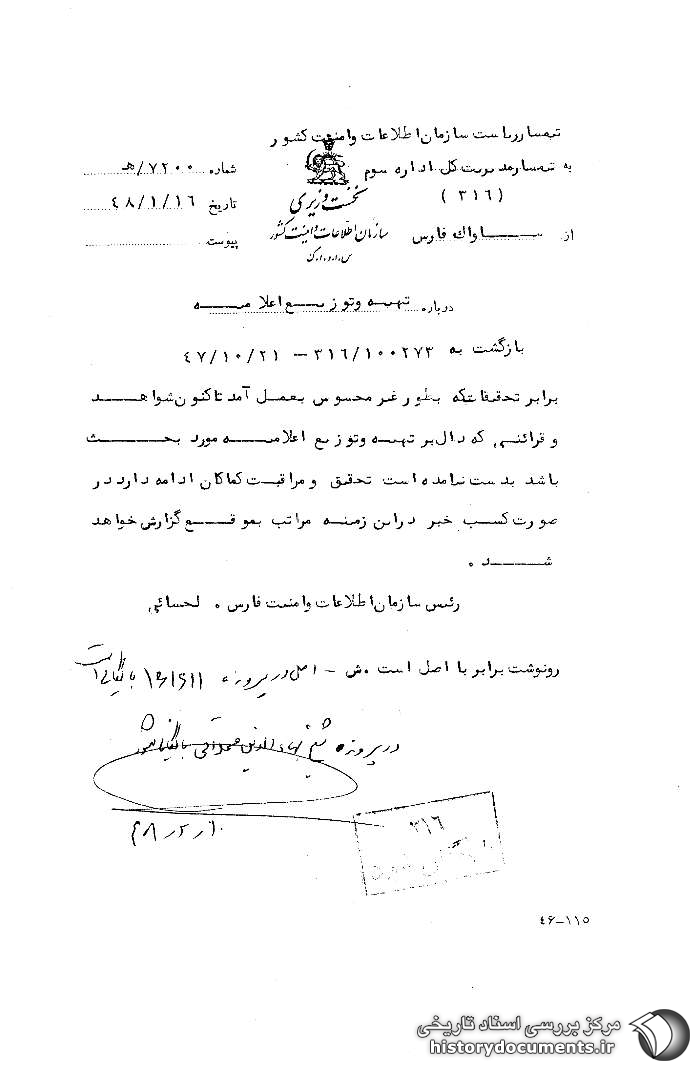 تیمسار ریاست سازمان اطلاعات و امنیت کشور
به تیمسار مدیریت کل اداره سوم
(۳۱۶)
از ساواک فارس
نخست وزیری
سازمان اطلاعات و امنیت کشور
س.ا.و.ا.ک
شماره ۷۲۰۰/هـ
تاریخ ۴۸/۱/۱۶
پیوست
درباره تهیه و توزیع اعلامیه
بازگشت به ۳۱۶/۱۰۰۲۷۳ – ۴۷/۱۰/۲۱
برابر تحقیقاتیکه بطور غیر محسوس بعمل آمد تاکنون شواهد
و قرائنی که دال بر تهیه و توزیع اعلامیه مورد بحث
باشد بدست نیامده است تحقیق و مراقبت کماکان ادامه دارد در
صورت کسب خبر در این زمینه مراتب بموقع گزارش خواهد
شد .
رئیس سازمان اطلاعات و امنیت فارس . لحسائی
رونوشت برابر با اصل است .ش – اصل در پرونده بایگانی است
در پرونده شیخ بهاءالدین محلاتی بایگانی شود
۴۸/۲/۱۰
۳۱۶
۴۶–۱۱۵
مرکز بررسی اسناد تاریخی
historydocuments.ir